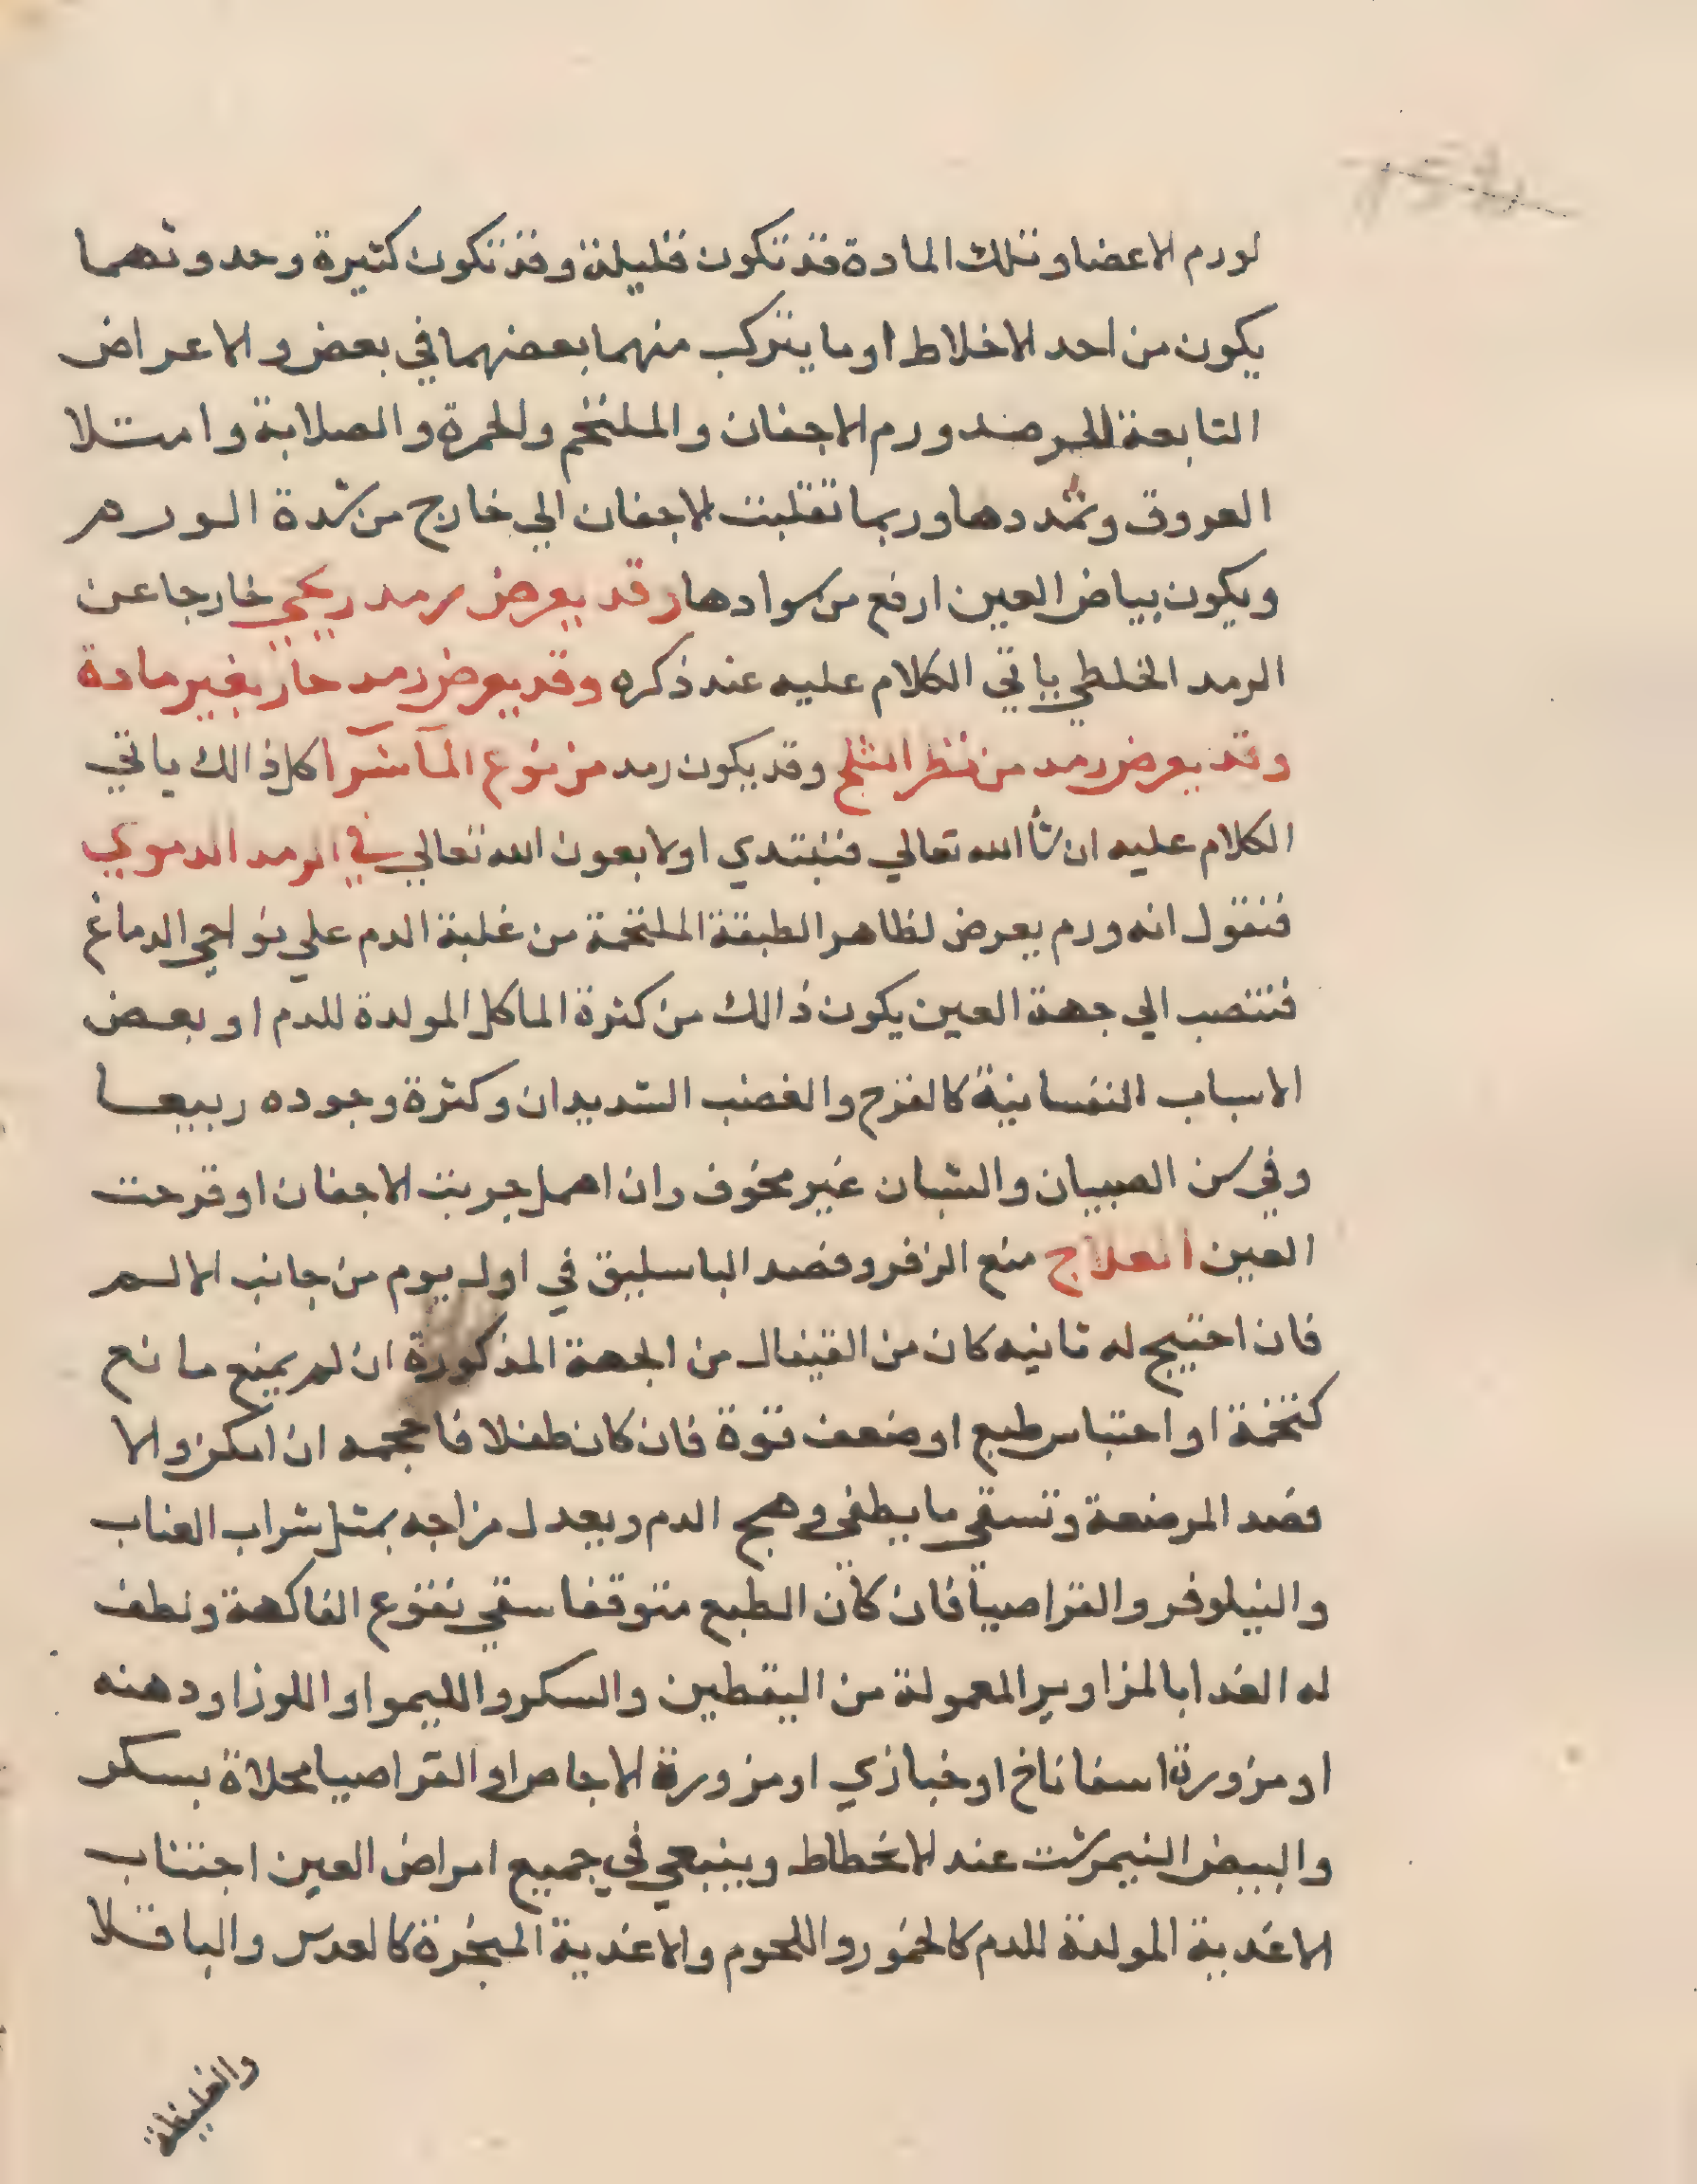 لورم الاعضا وتلك المادة قد تكون قليلة وقد تكون كثيرة وحدوثهما
يكون من احد الاخلاط او ما يتركب منهما بعضهما في بعض والاعراض
التابعة للرمد ورم الاجفان والملتحم والحمرة والصلابة وامتلا
العروق وتمددها وربما تقلبت الاجفان الي خارج من شدة الورم
ويكون بياض العين ارفع من سوادها وقد يعرض رمد ريحي خارجا عن
الرمد الخلطي ياتي الكلام عليه عند ذكره وقد يعرض رمد حار بغير مادة
وقد يعرض رمد من نظر الثلج وقد يكون رمد من نوع الماشرا كل ذالك ياتي
الكلام عليه ان شا الله تعالي فنبتدي اولا بعون الله تعالي في الرمد الدموي
فنقول انه ورم يعرض لظاهر الطبقة الملتحمة من غلبة الدم علي نواحي الدماغ
فتنصب الي جهة العين يكون ذالك من كثرة الماكل المولدة للدم او بعض
الاسباب النفسانية كالفزح والغضب الشديدان وكثرة وجوده ربيعا
وفي سن الصبيان والشبان غير مخوف وان اهمل جربت الاجفان او قرحت
العين العلاج منع الزفر وفصد الباسليق في اول يوم من جانب الالم
فان احتيج له ثانيه كان من القيفال من الجهة المذكورة ان لم يمنع مانع
كتخمة او احتباس طبع او ضعف قوة فان كان طفلا فاحجمه ان امكن والا
فصد المرضعة وتسقي ما يطفي وهج الدم ويعدل مزاجه بمثل شراب العناب
والنيلوفر والقراصيا فان كان الطبع متوقفا سقي نقوع الفاكهة ولطف
له الغدا بالمزاوير المعمولة من اليقطين والسكر والليموا واللوز او دهنه
او مزورة اسفاناخ او خبازي او مزورة الاجاص او القراصيا محلاة بسكر
والبيض النيمرشت عند الانحطاط وينبغي في جميع امراض العين اجتناب
الاغدية المولدة للدم كالخمور واللحوم والاغدية المبخرة كالعدس والباقلا
والغليظة